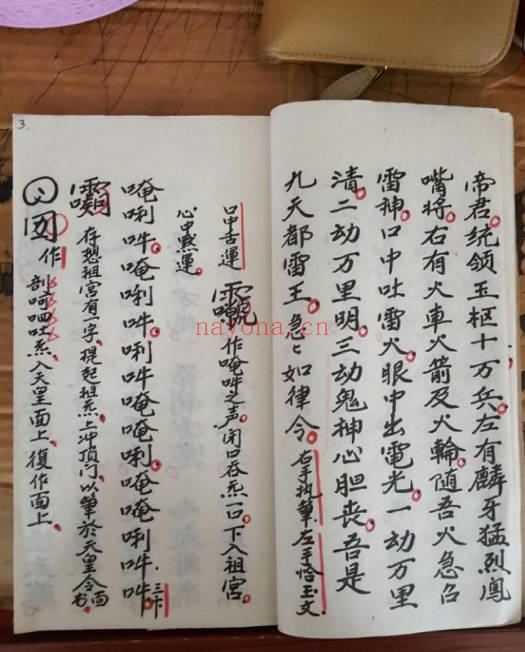 帝君。统领玉枢十万兵。左有麟牙猛烈鳳
嘴將。右有火車火箭及火輪。随吾火急召
雷神。口中吐雷火。眼中出電光。一动万里
清。二动万里明。三动鬼神心胆丧。吾是
九天都雷王。急〻如律令。右手执筆。左手恰玉文。
口中舌運
心中黙運。
作唵吽之声。闭口吞炁一口。下入祖宮。
唵唎吽。唵唎吽。唎吽唵唵唎。唵唵唎吽。吽。三下
存想祖宮有一字。提起祖炁。上冲顶门。以筆於天皇令面书
作
剖呵呬吹炁。入天皇面上。復作面上。
3.
nayona.cn